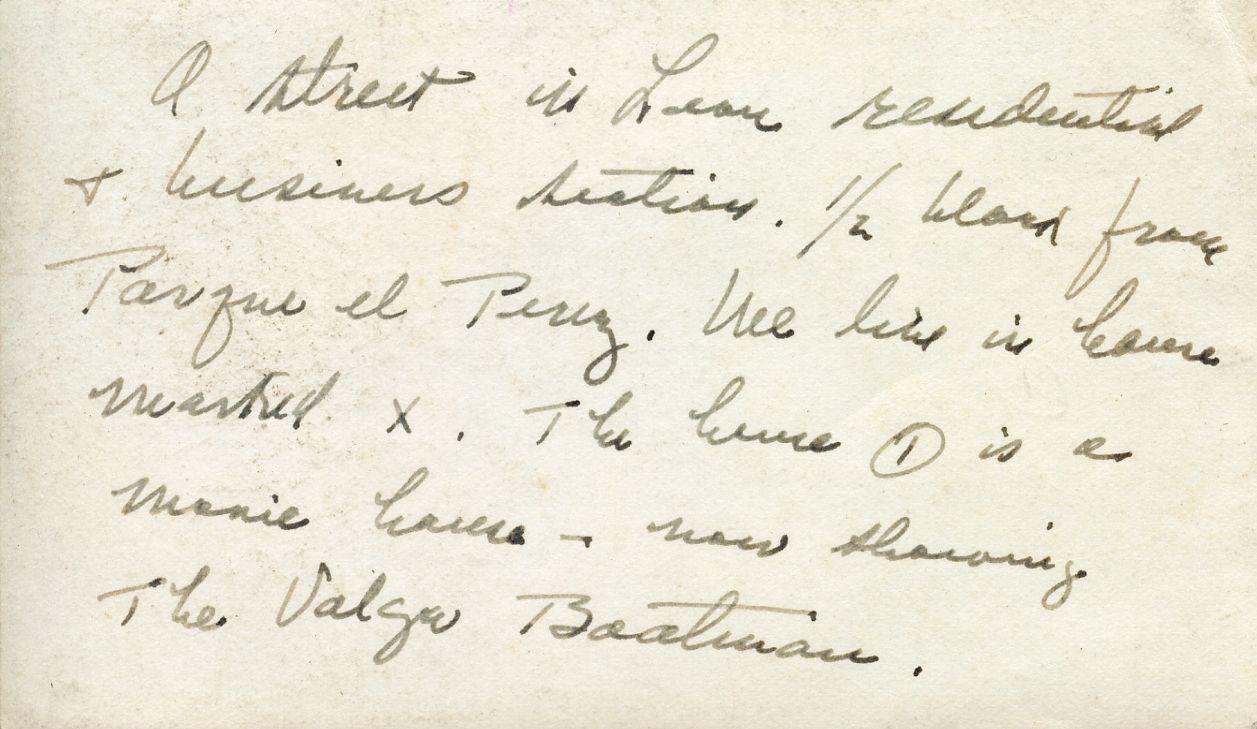 A street in Leon residential
+ business section. 1/2 block from
Parque el Perez. We live in house
marked x. The house ① is a
movie house - now showing
The Valga Boatman.